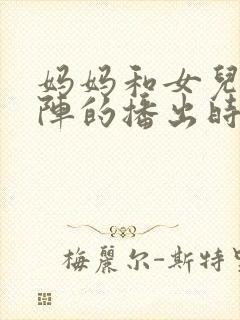 妈妈和女兒
陣的播出時
梅麗尔-斯特